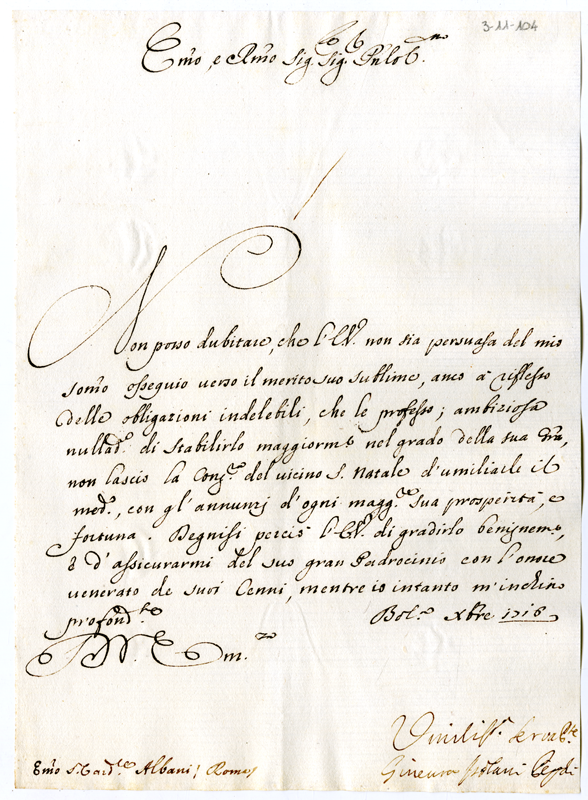 3-11-104
Emo, e Rmo Sig. Sig. Pne Col.mo
Non posso dubitare, che l'E.V. non sia persuasa del mio
somo ossequio verso il merito suo sublime, anco à riflesso
delle obligazioni indelebili, che le professo; ambiziosa
nullad.o di stabilirlo maggiorm.e nel grado della sua
non lascio la Cong.a del vicino S. Natale d'umiliarle il
med.o, con gl'annunzj d'ogni magg.re sua prosperità, e
fortuna. Degnisi perciò l'E.V. di gradirlo benignem.e,
e d'assicurarmi del suo gran Padrocinio con l'onore
venerato de suoi Cenni, mentre io intanto m'inchino
profond.te Bol.a Xbre 1718
Di V. Em.za
Umiliss.a Serva
Emo S. Card.le Albani / Roma /
Ginevra Isolani